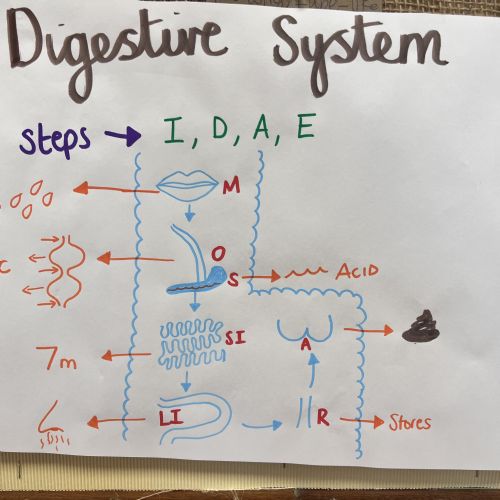 Digestive System
Steps → I, D, A, E
M
O
S
Acid
SI
A
7m
LI
R
Stores